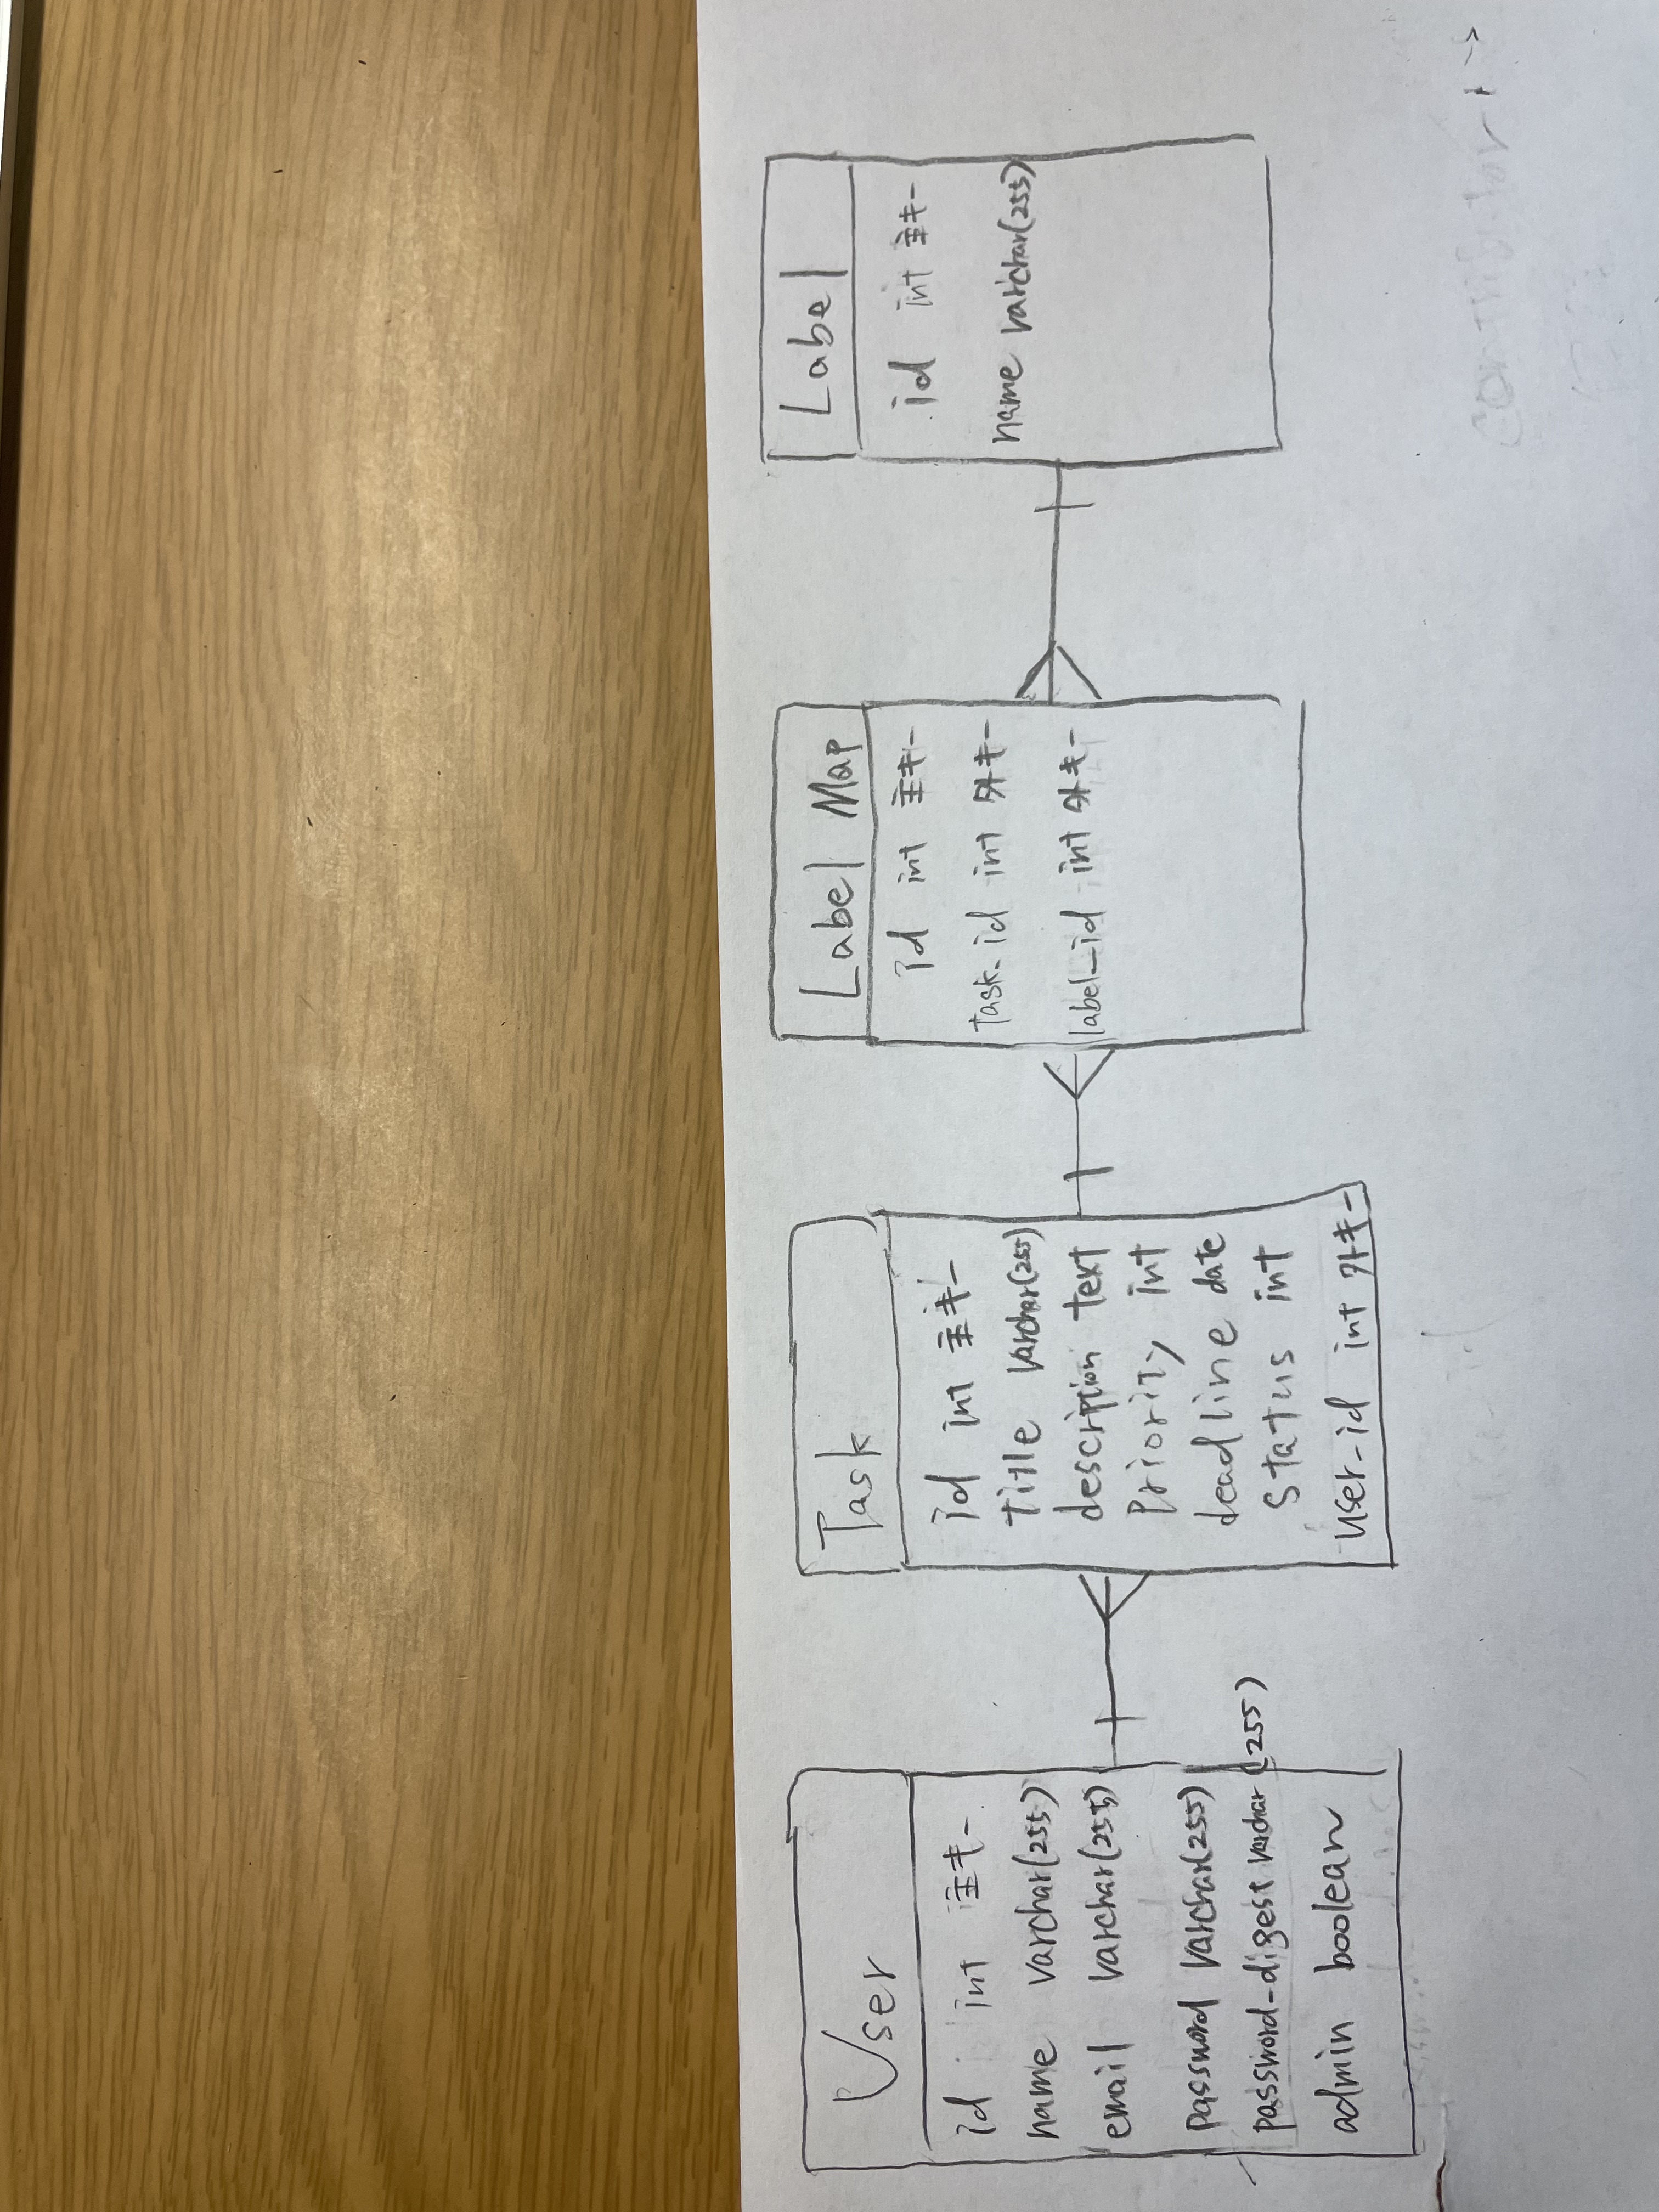 User
id int 主キー
name varchar(255)
email varchar(255)
password varchar(255)
password_digest varchar(255)
admin boolean
Task
id int 主キー
title varchar(255)
description text
priority int
deadline date
status int
user_id int 外キー
Label Map
id int 主キー
task_id int 外キー
label_id int 外キー
Label
id int 主キー
name varchar(255)